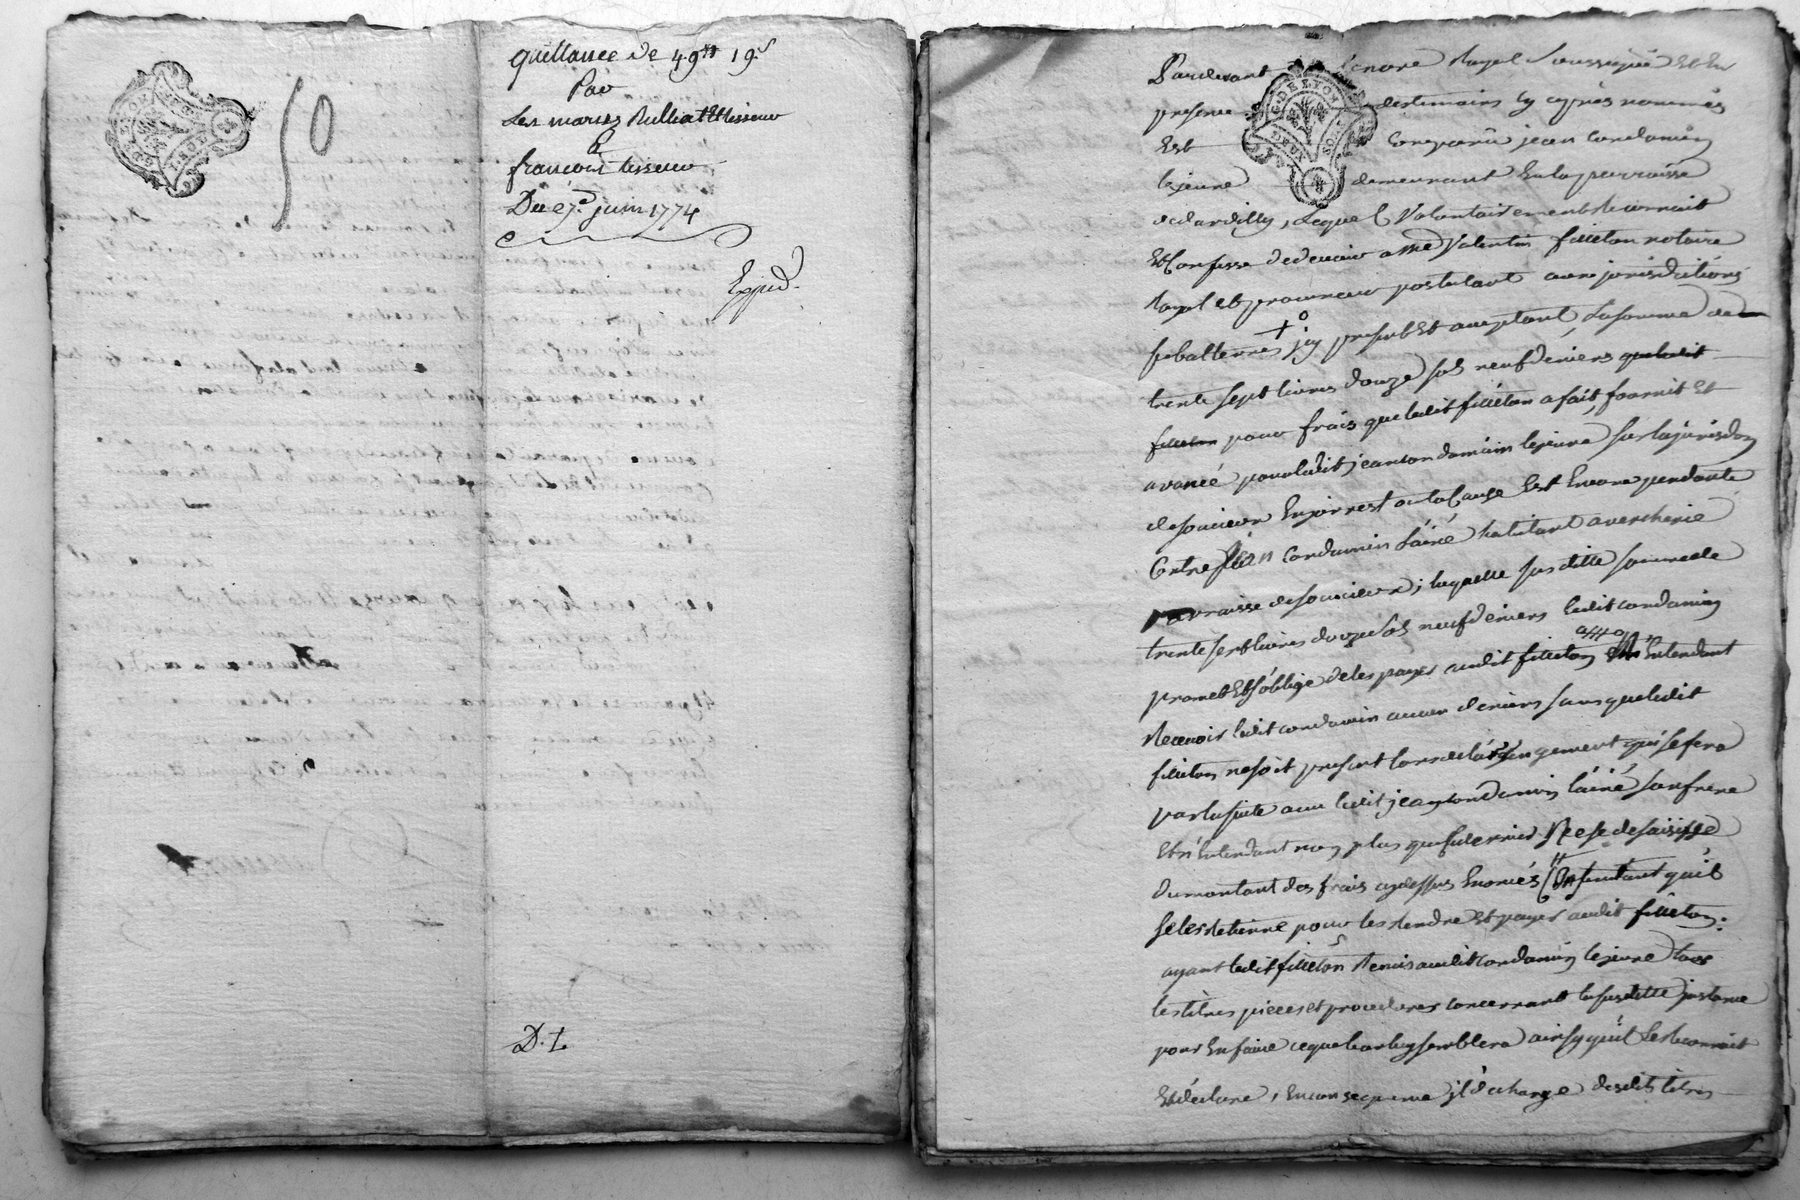 GEN DE LYON
DEUX SOLS
50
quittance de 49tt 19s
Par
Les mariés Rulliat et tisseur
a
francois tisseur
Du 27e juin 1774
Expéd.
D. L
Pardevant le notaire Royal Soussigné Et En
presence destemoins cy après nommés
GEN DE LYON
DEUX SOLS
Est comparu jean Condamin
lejeune demeurant En la parroisse
dedardilly, Lequel Volontairement Reconnoit
Et Confesse dedevoir a Me Valentin filleton notaire
Royal et procureur postulant aux jurisdictions
subalternes, jcy present Et acceptant, Lasomme de
trente sept livres douze sols neuf deniers queledit
filleton pour frais queledit filleton a fait, fournit et
avancé pour ledit jean Condamin lejeune sur lajurisdon
desoucieu Enjarrest ou la Cause Est Encore pendante
Contre jean Condamin L'ainé habitant a vercherie
parroisse desoucieu; laquelle susditte somme de
trente sept livres douze sols neuf deniers ledit condamin
promet Et s'oblige de les payer audit filleton n'Entendant
Recevoir ledit condamin aucun deniers sans queledit
filleton ne soit present lors del'arrengement qui se fera
par la suite avec ledit jean Condamin l'ainé son frere
Et n'Entendant non plus que ce dernier Ne se desaisisse
du montant des frais cy dessus Enoncés
seles retienne pour les Rendre et payer audit filleton.
ayant ledit filleton Remis audit Condamin lejeune tous
les titres pieces et procedures concernant la susditte jnstance
pour En faire ceque bon luy semblera ainsy qu'il Le Reconnoit
Et déclare, En consequence jl décharge desdits titres